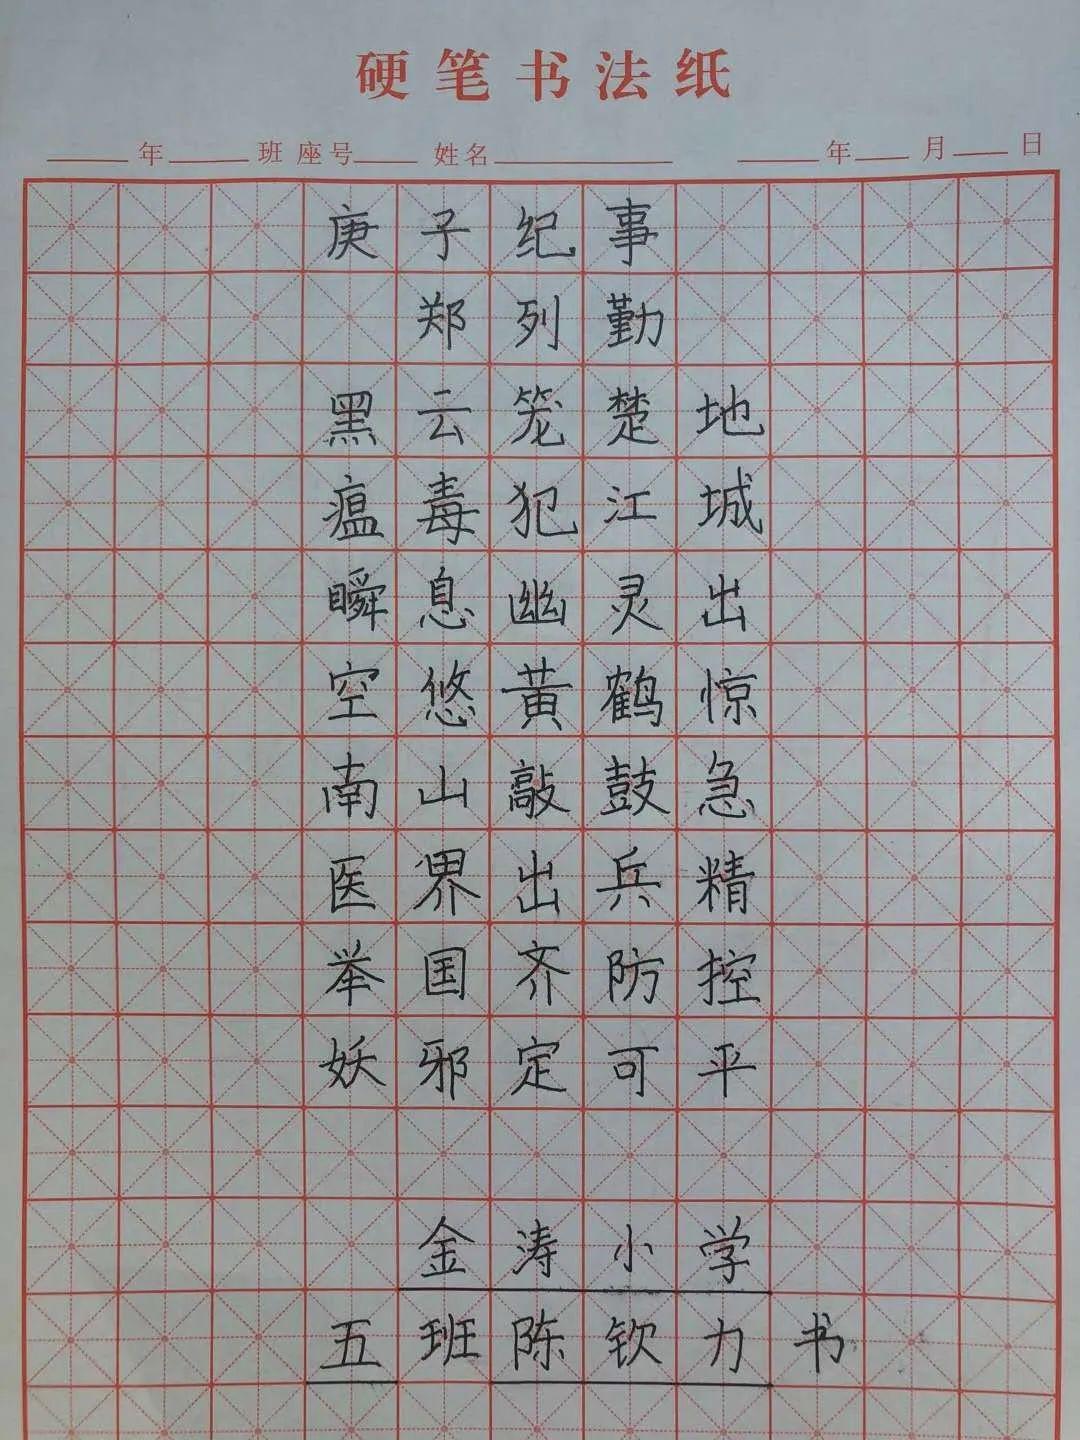 硬笔书法纸
年 班 座号 姓名 年 月 日
庚子纪事
郑列勤
黑云笼楚地
瘟毒犯江城
瞬息幽灵出
空悠黄鹤惊
南山敲鼓急
医界出兵精
举国齐防控
妖邪定可平
金涛小学
五班陈钦力书